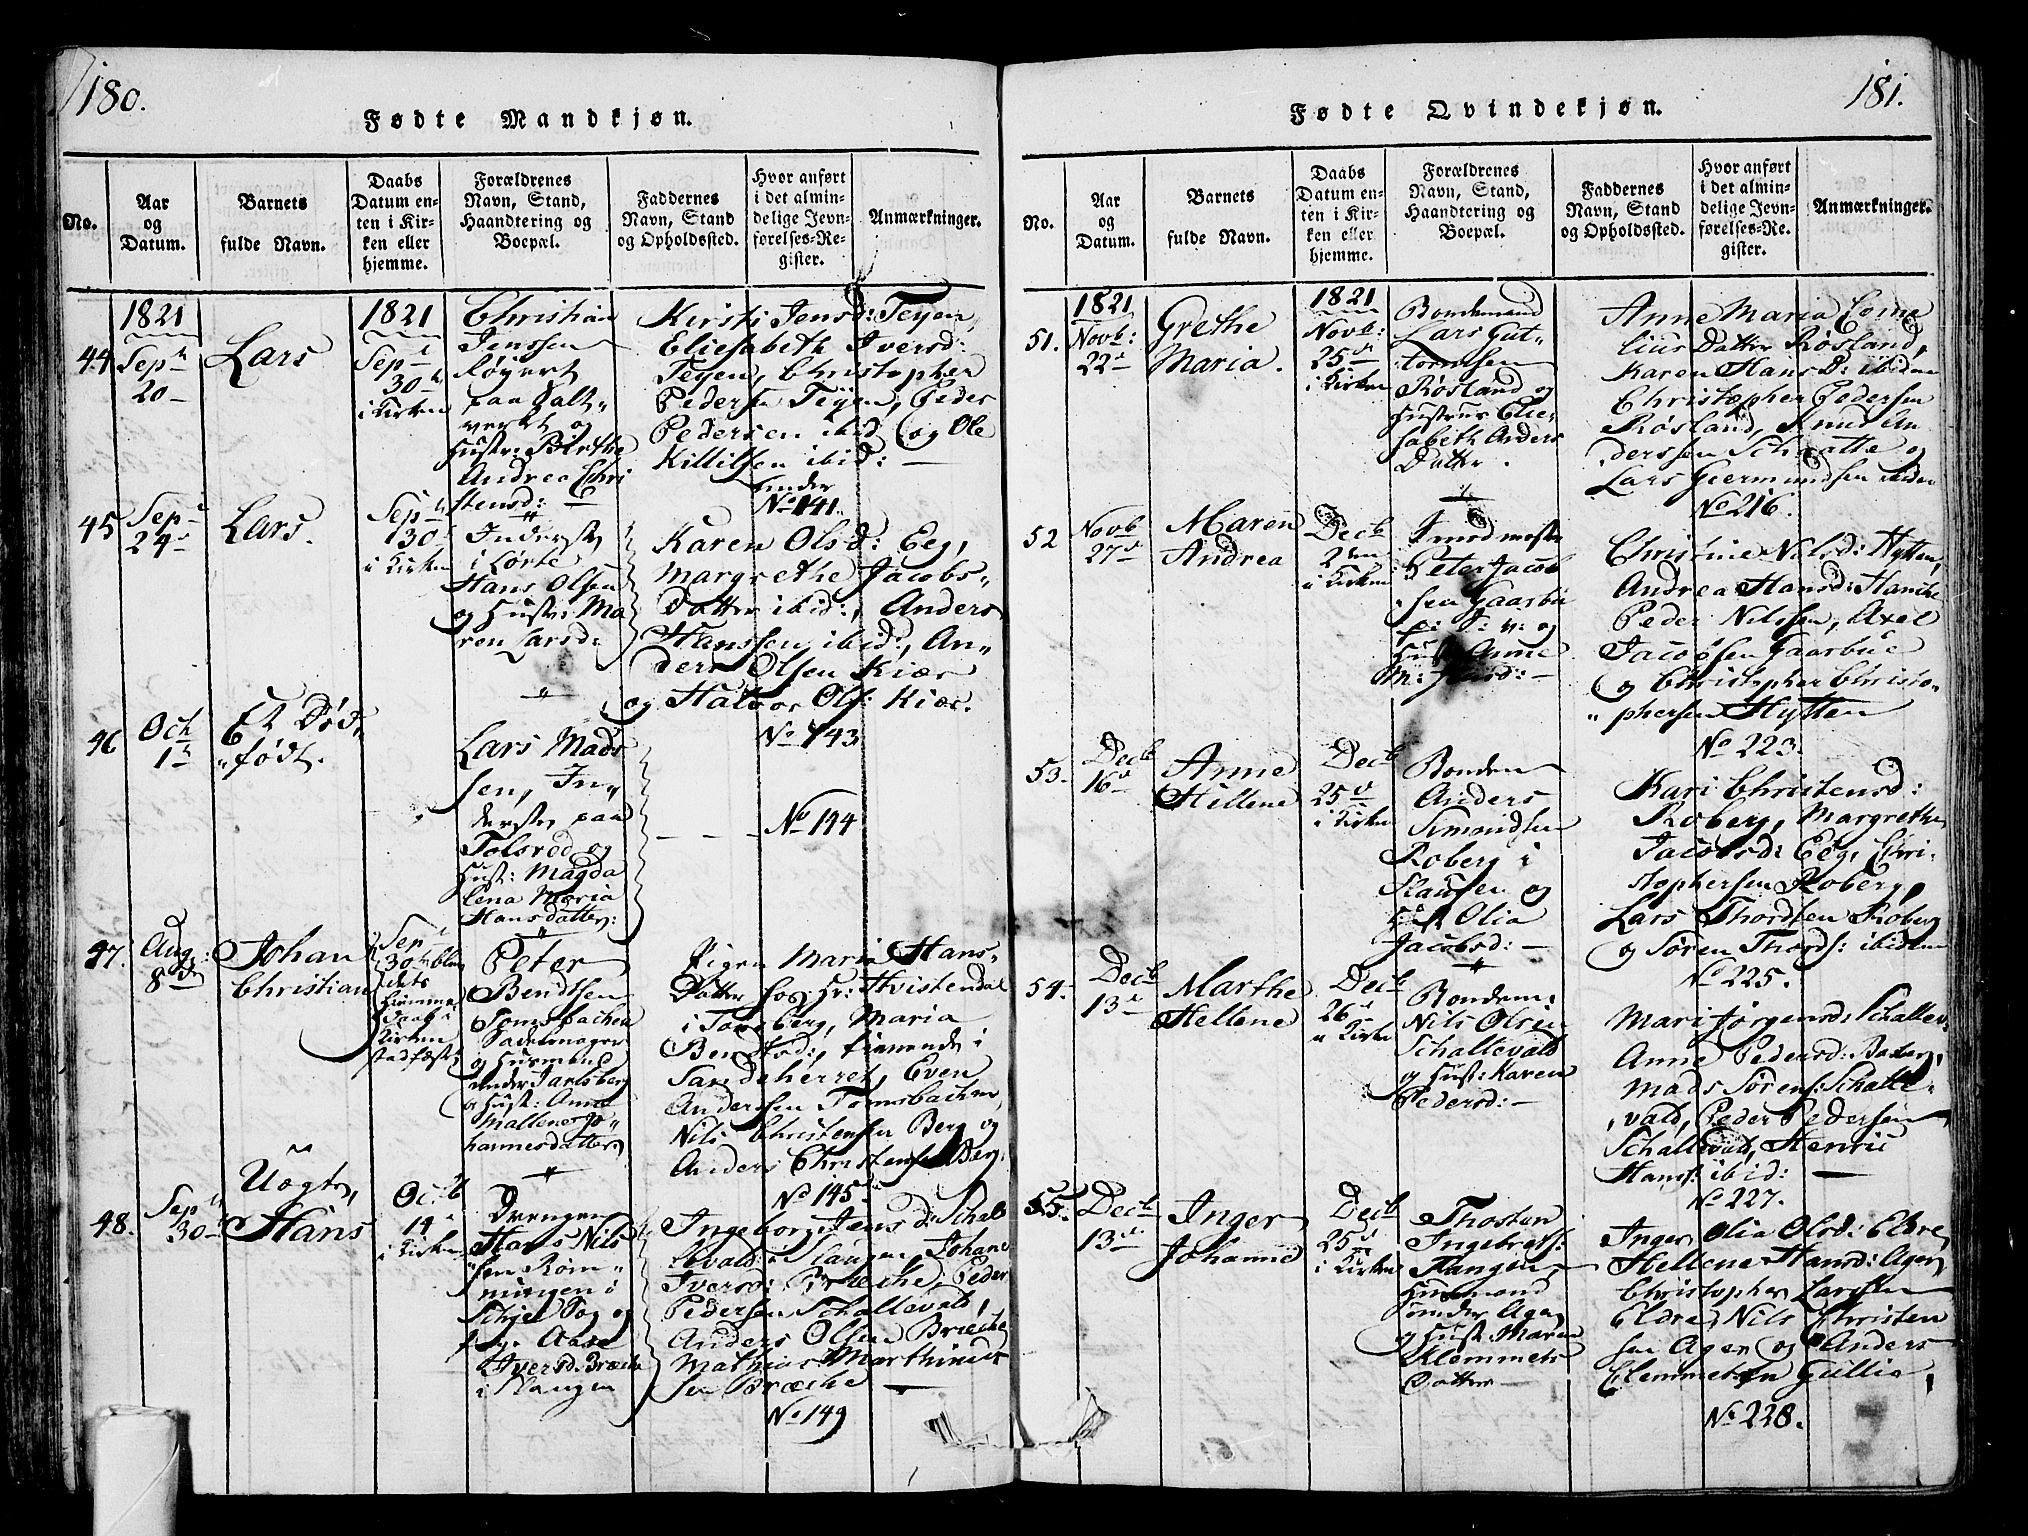 180.
Fødte Mandkjøn.
No.
Aar
og
Datum.
Barnets
fulde Navn.
Daabs
Datum en-
ten i Kir-
ken eller
hjemme.
Forældrenes
Navn, Stand,
Haandtering og
Boepæl.
Faddernes
Navn, Stand
og Opholdssted.
Hvor anført
i det almin-
delige Jevn-
førelses-Re-
gister.
Anmærkninger.
44
1821
Sept
20
Lars
1821
Sept
30
i Kirken
Christian
Jenssen
paa
og
Hustr: Birthe
Andrea Chri
stensd:
Kirsti Jensd: Teyen,
Eliesabeth Iversd:
Teyen, Christopher
Pedersen Teyen, Peder
Pedersen ibid og Ole
Killilsen ibid:
under
No 141.
45
Sept
24
Lars.
Sept
30
i Kirken
Inderste
i Lørte
Hans Olsen
og Hustr: Ma
ren Larsd:
Karen Olsd: Eeg,
Margrethe Jacobs„
Datter ibid:, Anders
Hanssen ibid:, An„
ders Olsen Kiær
og Halvor Ols: Kiær.
No 143
46
Oct
1
Et Død„
„født.
Lars Mads
sen, In„
derste paa
Tolsrød og
Hust: Magda
lena Maria
Hansdatter:
No 144
47.
Aug:
8de
Johan
Christian
Sep
30
dets
Hiemme
daab i
Kirken
stadfæst
Peter
Bendtsen
Tomsbachen
Sadelmager
og Husmand
under Jarlsberg
og Hust: Anne
Mallene Jo„
hannesdatter
Pigen Maria Hans„
Datter hos Hr: Hvistendal
i Tonsberg, Maria
Bendtsd:, tienende i
Sandeherret, Even
Andersen Tomsbachen,
Nils Christensen Berg og
Anders Christensen Berg.
No 145
48.
Sept
30
Uægte,
Hans
Octb
14
i Kirken
Drengen
Hans Nils
„sen Røm„
mingen i
Schje Sog og
Pige Aase
Iversd: Bræche
i Slangen
Ingeborg Jens d: Schal
levald i Slangen, Johane
Iversd: Bræche, Peder
Pedersen Schallevald,
Anders Olsen Bræche
Mathias Marthinus
sen Bræche
No 149
181.
Fødte Qvindekjøn.
No.
Aar
og
Datum.
Barnets
fulde Navn.
Daabs
Datum en-
ten i Kir-
ken eller
hjemme.
Forældrenes
Navn, Stand,
Haandtering og
Boepæl.
Faddernes
Navn, Stand
og Opholdssted.
Hvor anført
i det almin-
delige Jevn-
førelses-Re-
gister.
Anmærkninger.
51.
1821
Novb:
22
Grethe
Maria.
1821
Novb:
25
i Kirken
Bondemand
Lars Gut„
tormsen
Røsland og
Hustrue Elie„
sabeth Anders
Datter.
Anne Maria Corne
lius Datter Røsland,
Karen Hans D: ibidem
Christopher Pedersen
Røsland, Knud An
derssen Schatte og
Lars Giermundsen ibidem
No 216.
52
Novb
27
Maren
Andrea
Decb
2den
i Kirken
Peter Jacob
sen Gaarbue
og
Hust Anne
Christine Nilsd: Hytten,
Andrea Hansd: Hanche
Peder Nilssen, Axel
Jacobsen Gaarbue
og Christopher Christo„
„phersen Hytten
No 223.
53.
Decb
16
Anne
Hellene
Decb
25
i Kirken
Bonden
Anders
Simondsen
Roberg i
Slausen og
Hust Olia
Jacobsd:
Kari Christensd:
Roberg, Margrethe
Jacobsd: Eeg, Chri„
stophersen Roberg,
Lars Thordsen Roberg
og Søren Thords: ibidem
No 225.
54.
Decb
13
Marthe
Hellene
Decb
26
i Kirken
Bondem:
Nils Olsen
Schallevald
og Hust: Karen
Pedersd:
Mari Jørgensd: Schallev.
Anne Pedersd: Baberg,
Mads Sørens: Schalle„
„vald, Peder Pedersen
Schallevald, Henric
Hans: ibid:
No 227.
55.
Decb
13
Inger
Johanne
Decb
25
i Kirken
Thosten
Ingebrets:
Tangen,
Husmand
under Agen
og Hust Maren
Klemmets
Datter
Inger Olia Olsd: Eldre,
Hellene Hansd: Agen
Christopher Larsen
Eldre, Nils Christen
sen Agen og Anders
Clemmetsen Gullie,
No 228.